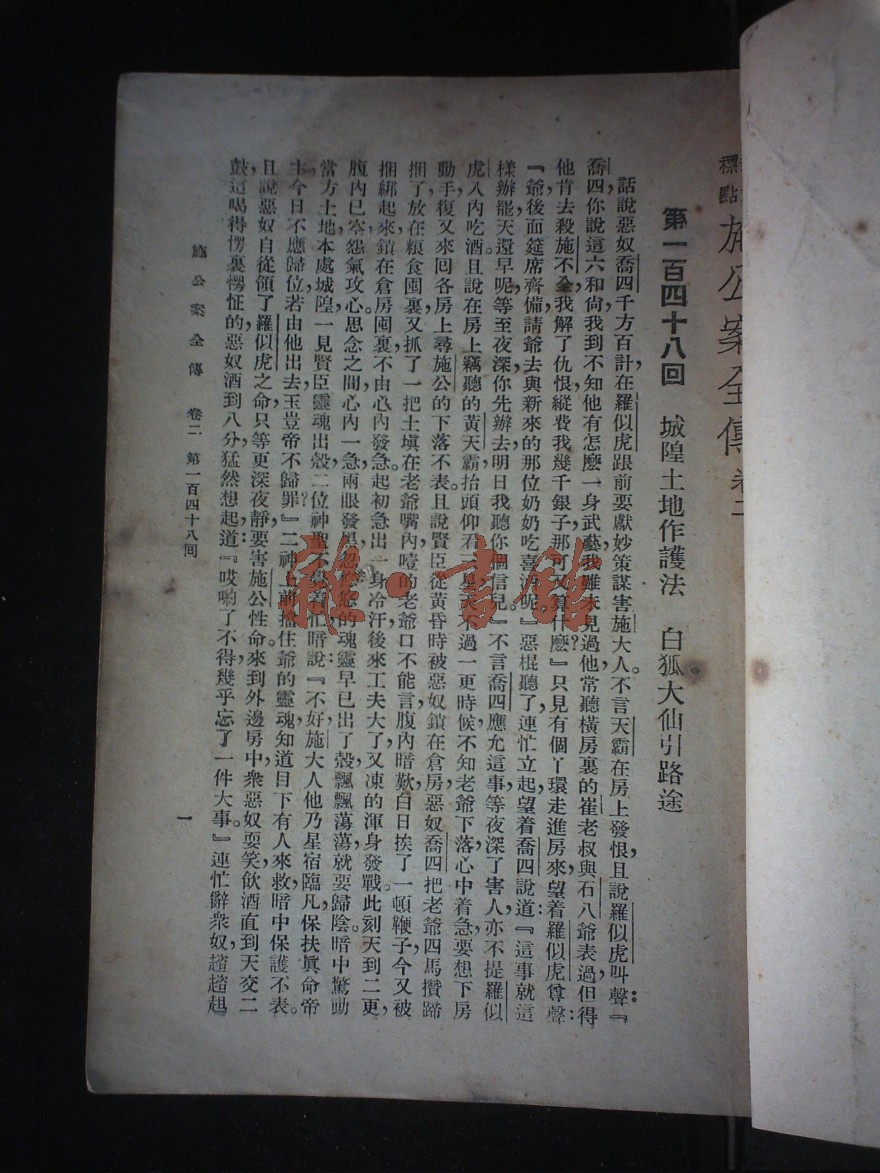 標點 施公案全傳 卷二
第一百四十八回 城隍土地作護法 白狐大仙引路途
話說惡奴喬四千方百計，在羅似虎跟前要獻妙策，謀害施大人。不言天霸在房上發恨，且說羅似虎叫聲：『
喬四，你說這六和尚，我到不知他有怎麼一身武藝，我雖未見過他，常聽橫房裏的崔老叔與石八爺表過，但得
他肯去殺施不全，我解了仇恨，縱費我幾千銀子，那可又算什麼？』只見有個丫環走進房來，望着羅似虎尊聲：
『爺，後面筵席齊備，請爺去與新來的那位奶奶吃喜酒呢。』惡棍聽了，連忙立起，望着喬四說道：『這事就這
樣辦罷，天還早呢，等至夜深，你先辦去，明日我聽你個信兒。』不言喬四應允這事，等夜深了害人，亦不提羅似
虎入內吃酒，且說在房上竊聽的黃天霸，抬頭仰看星天，不過一更時候，不知老爺下落，心中着急，要想下房
動手，復又來回各房上尋施公的下落不表。且說賢臣從黃昏時被惡奴鎖在倉房，惡奴喬四把老爺四馬攢蹄
捆了，放在粮食囤裏，又抓了一把土塡在老爺嘴內，噎的老爺口不能言，腹內暗歎，白日挨了一頓鞭子，今又被
捆綁起來，鎖在倉房囤裏，不由心內發急。起初急出一身冷汗，後來工夫大了，又凍的渾身發戰。此刻天到二更，
腹內已空，怨氣攻心。思念之間，心內一急，兩眼發黑，忽悠悠的魂靈早已出了殼，飄飄蕩蕩，就要歸陰。暗中驚動
當方土地，本處城隍，一見賢臣靈魂出殼，二位神聖不敢着忙，暗說：『不好，施大人他乃星宿臨凡，保扶眞命帝
主，今日不應歸位，若由他出去，玉豈帝不歸罪？』二神上前，擋住爺的靈魂，知道目下有人來救，暗中保護不表。
且說惡奴自從領了羅似虎之命，只等更深夜靜，要害施公性命。來到外邊房中，衆惡奴耍笑飲酒，直到天交二
鼓，這喝得愣裏愣怔的惡奴，酒到八分，猛然想起道：『哎喲了不得，幾乎忘了一件大事。』連忙辭衆奴，趫趫趄
施公案全傳 卷二 第一百四十八回 一
雅·書館